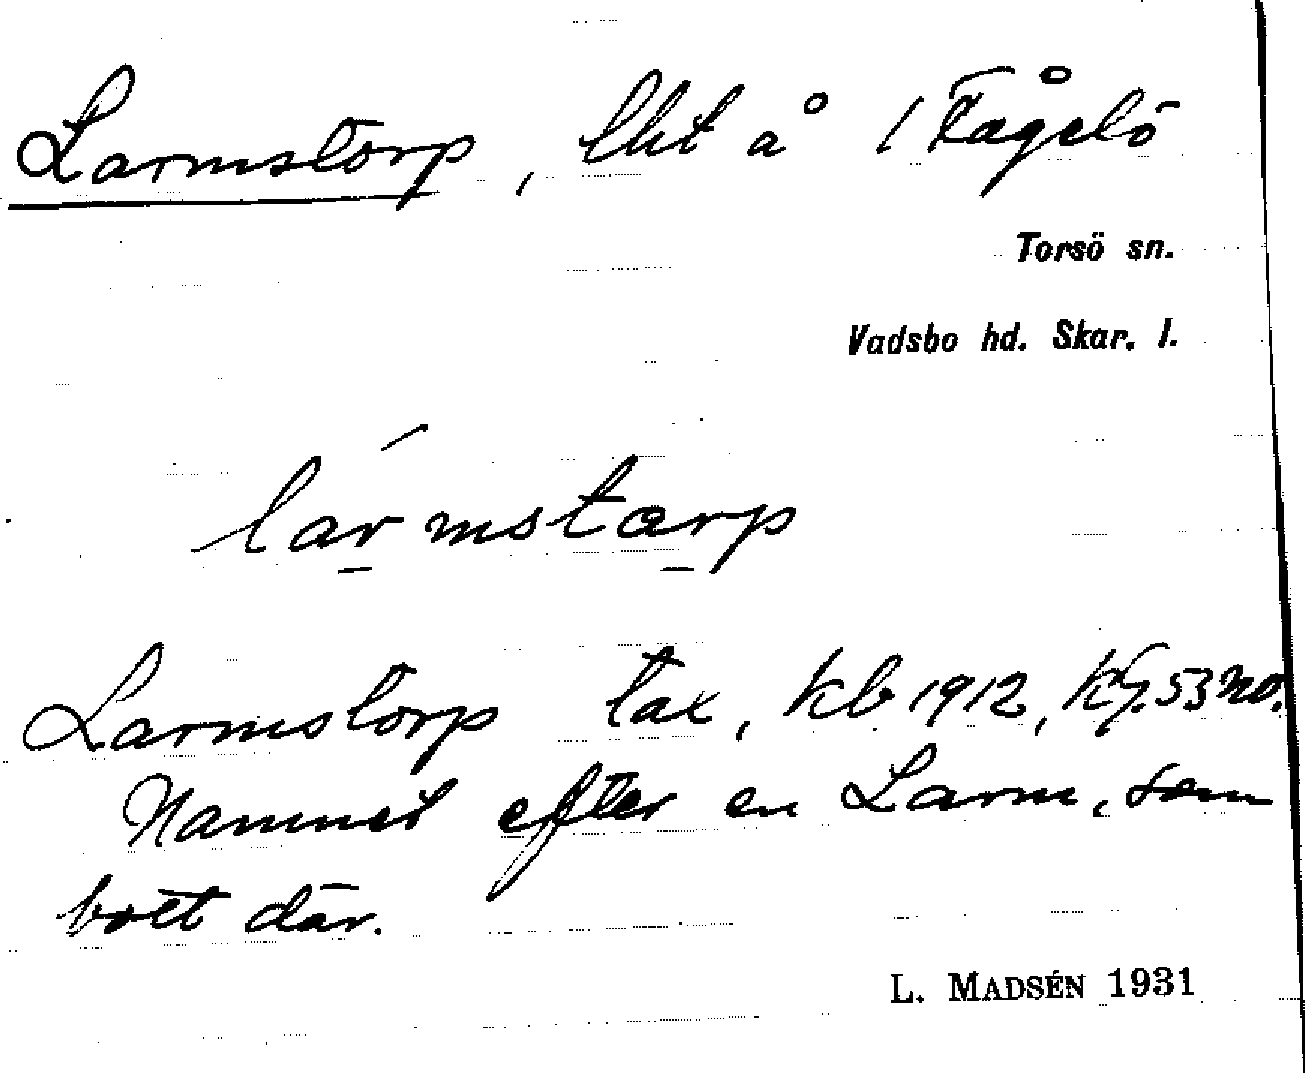 Larmstorp, lht å 1 Fågelö
Torsö sn.
Vadsbo hd. Skar. l.
lármstarp
Larmstorp tax, kb 1912, kg. 53 no.
Namnet efter en Larm, som
bott där.
L. MADSÉN 1931